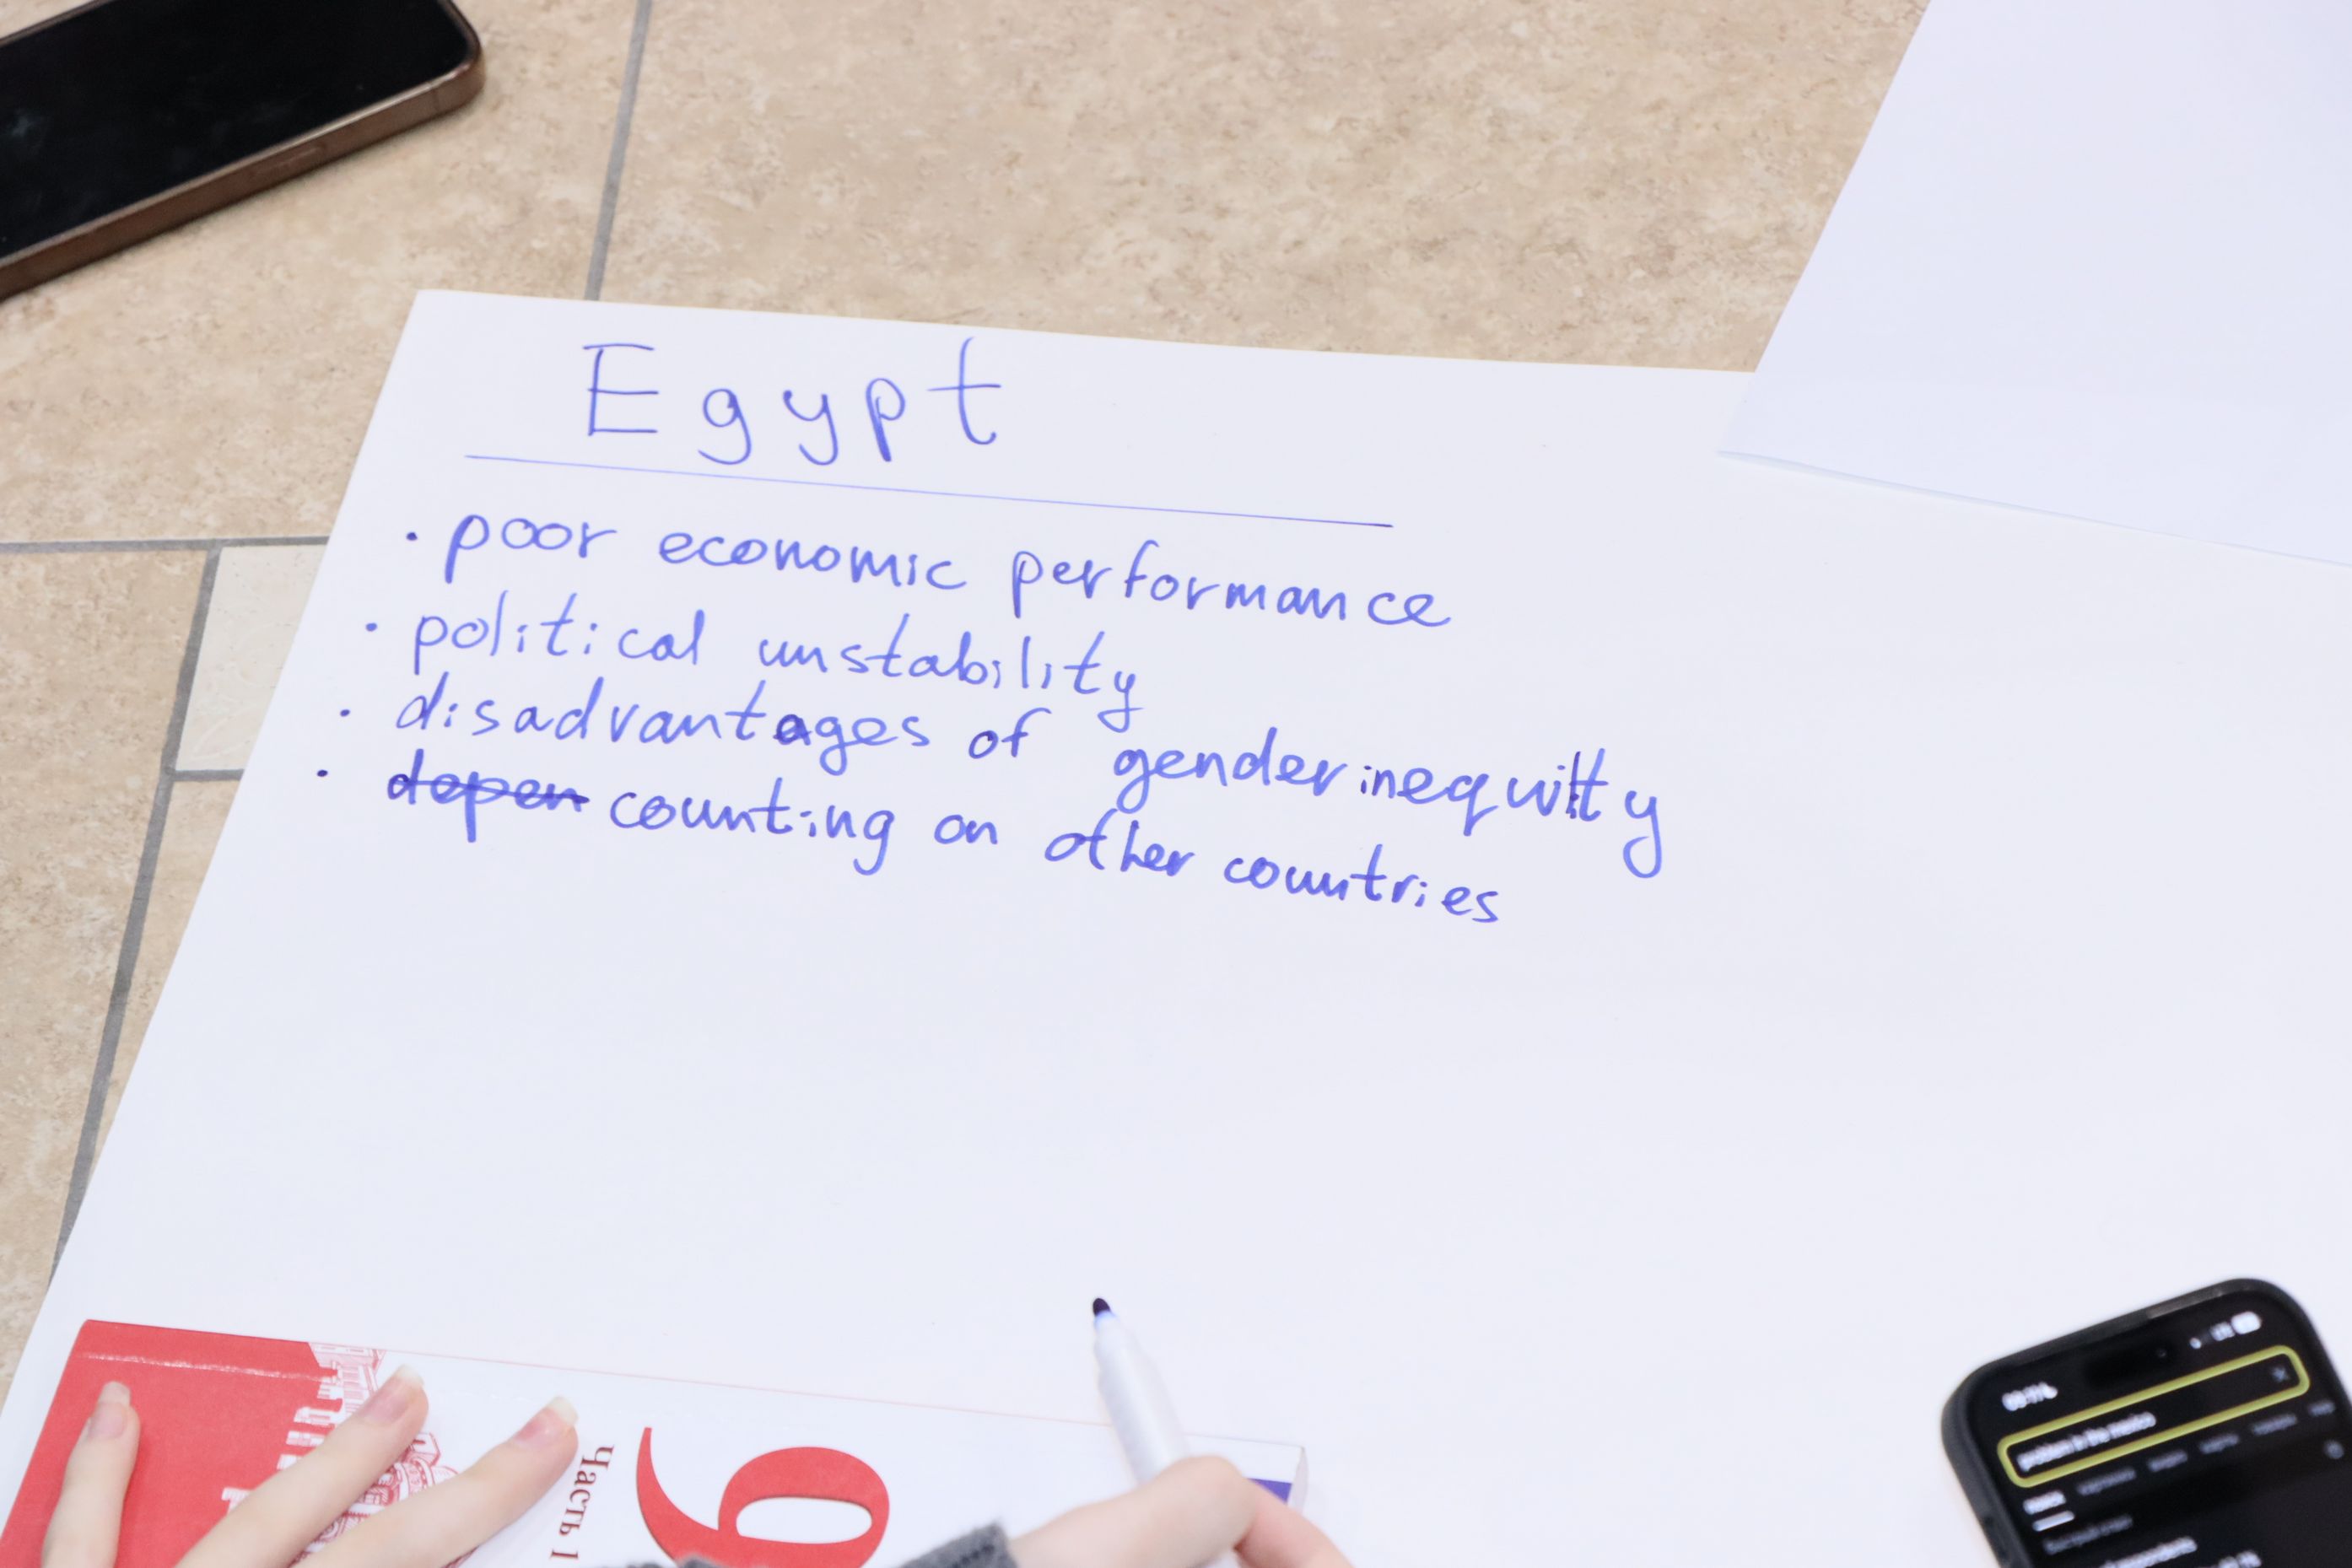 Egypt
· poor economic performance
· political unstability
· disadvantages of gender inequitty
· depen counting on other countries
9
Часть 1
problem in the mexico